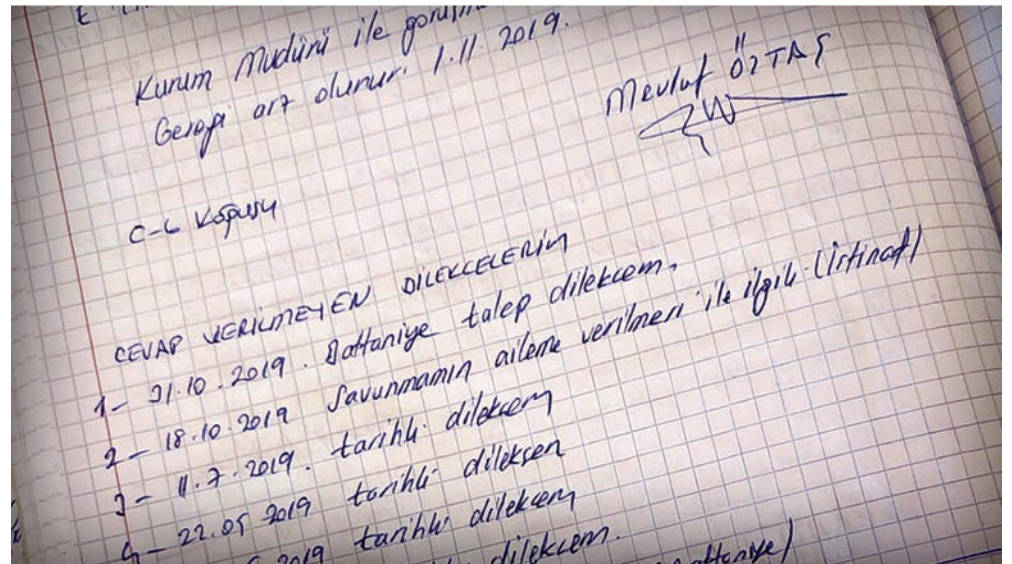 Kurum Müdürü ile
Gereği arz olunur. 1.11.2019.
Mevlut ÖZTAŞ
C-6 Koğuşu
CEVAP VERİLMEYEN DİLEKCELERİM
1- 31.10.2019. Battaniye talep dilekcem.
2- 18.10.2019 Savunmamın aileme verilmesi ile ilgili (İstinaf)
3- 11.7.2019. tarihli dilekcem
4- 22.05 2019 tarihli dilekcem
2019 tarihli dilekcem
dilekcem.